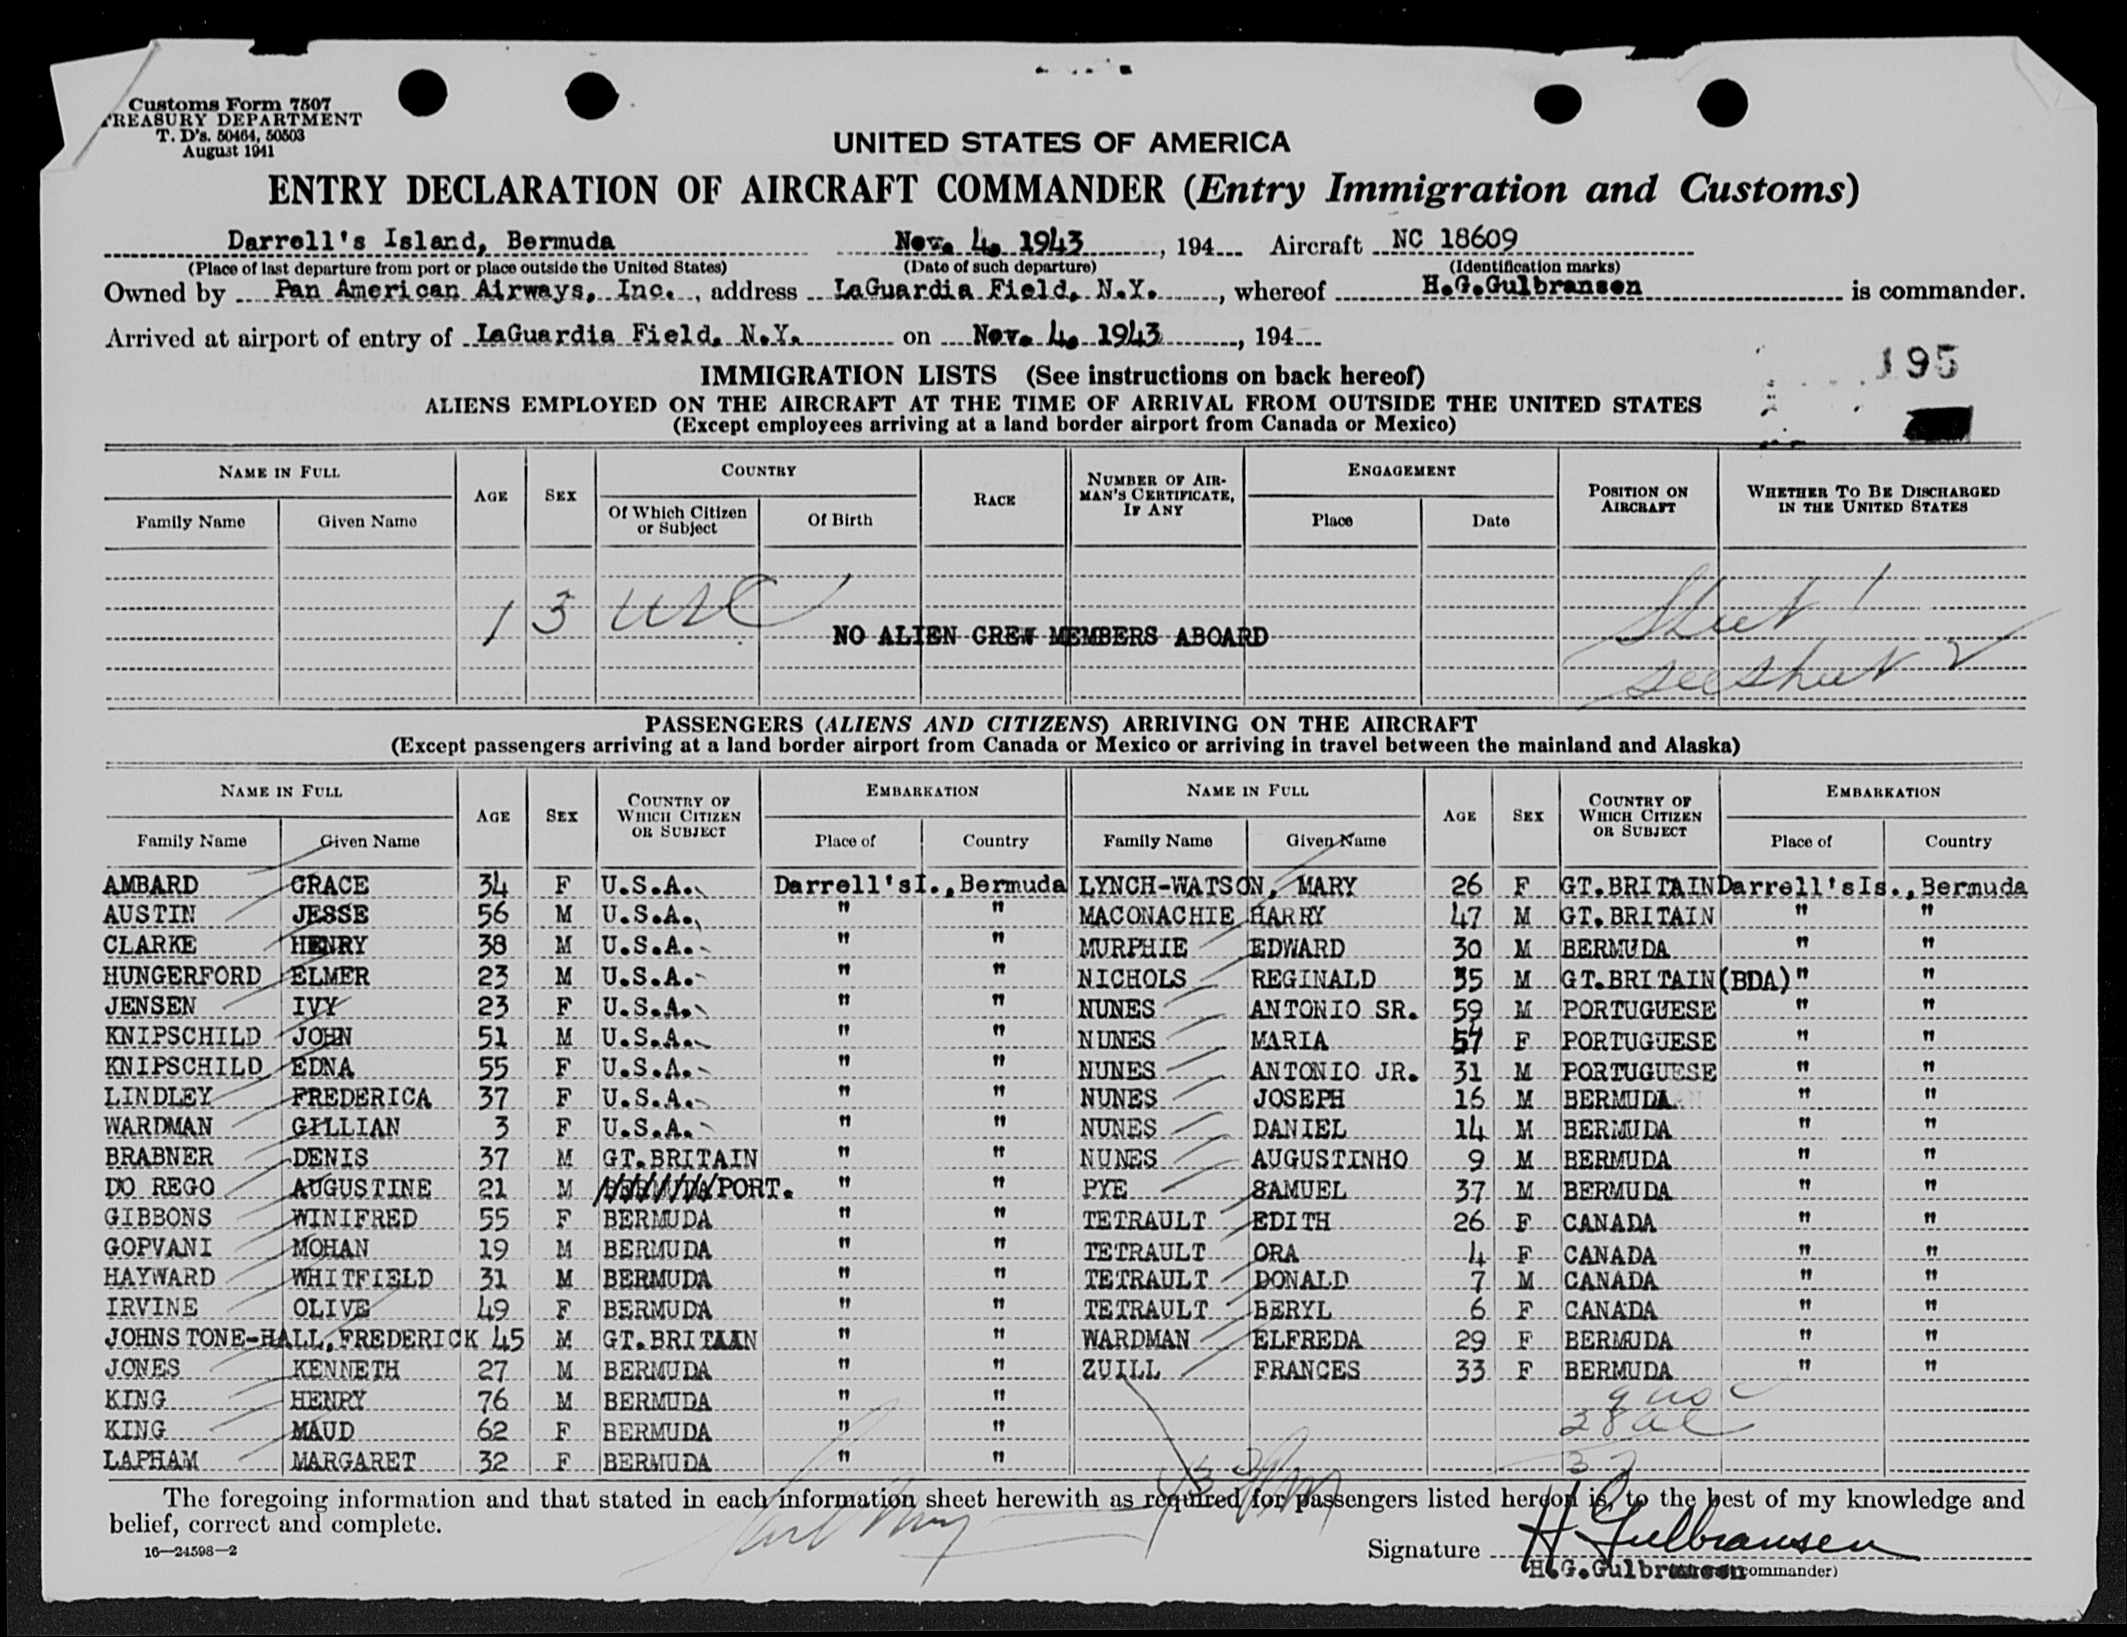 Customs Form 7507
TREASURY DEPARTMENT
T. D's. 50464, 50503
August 1941
UNITED STATES OF AMERICA
ENTRY DECLARATION OF AIRCRAFT COMMANDER (Entry Immigration and Customs)
Darrell's Island, Bermuda Nov. 4, 1943, 194 Aircraft NC 18609
(Place of last departure from port or place outside the United States) (Date of such departure) (Identification marks)
Owned by Pan American Airways, Inc., address LaGuardia Field, N.Y., whereof H.G.Gulbransen is commander.
Arrived at airport of entry of LaGuardia Field, N.Y. on Nov. 4, 1943, 194
195
IMMIGRATION LISTS (See instructions on back hereof)
ALIENS EMPLOYED ON THE AIRCRAFT AT THE TIME OF ARRIVAL FROM OUTSIDE THE UNITED STATES
(Except employees arriving at a land border airport from Canada or Mexico)
NAME IN FULL AGE SEX COUNTRY RACE NUMBER OF AIRMAN'S CERTIFICATE, IF ANY ENGAGEMENT POSITION ON AIRCRAFT WHETHER TO BE DISCHARGED IN THE UNITED STATES
Family Name Given Name Of Which Citizen or Subject Of Birth Place Date
13 USC
Sheet 1
NO ALIEN CREW MEMBERS ABOARD
see sheet 2
PASSENGERS (ALIENS AND CITIZENS) ARRIVING ON THE AIRCRAFT
(Except passengers arriving at a land border airport from Canada or Mexico or arriving in travel between the mainland and Alaska)
NAME IN FULL AGE SEX COUNTRY OF WHICH CITIZEN OR SUBJECT EMBARKATION NAME IN FULL AGE SEX COUNTRY OF WHICH CITIZEN OR SUBJECT EMBARKATION
Family Name Given Name Place of Country Family Name Given Name Place of Country
AMBARD GRACE 34 F U.S.A. Darrell'sI., Bermuda LYNCH-WATSON, MARY 26 F GT.BRITAIN Darrell'sIs., Bermuda
AUSTIN JESSE 56 M U.S.A. " " MACONACHIE HARRY 47 M GT.BRITAIN " "
CLARKE HENRY 38 M U.S.A. " " MURPHIE EDWARD 30 M BERMUDA " "
HUNGERFORD ELMER 23 M U.S.A. " " NICHOLS REGINALD 35 M GT.BRITAIN(BDA) " "
JENSEN IVY 23 F U.S.A. " " NUNES ANTONIO SR. 59 M PORTUGUESE " "
KNIPSCHILD JOHN 51 M U.S.A. " " NUNES MARIA 57 F PORTUGUESE " "
KNIPSCHILD EDNA 55 F U.S.A. " " NUNES ANTONIO JR. 31 M PORTUGUESE " "
LINDLEY FREDERICA 37 F U.S.A. " " NUNES JOSEPH 16 M BERMUDA " "
WARDMAN GILLIAN 3 F U.S.A. " " NUNES DANIEL 14 M BERMUDA " "
BRABNER DENIS 37 M GT.BRITAIN " " NUNES AUGUSTINHO 9 M BERMUDA " "
DO REGO AUGUSTINE 21 M PORT. " " PYE SAMUEL 37 M BERMUDA " "
GIBBONS WINIFRED 55 F BERMUDA " " TETRAULT EDITH 26 F CANADA " "
GOPVANI MOHAN 19 M BERMUDA " " TETRAULT ORA 4 F CANADA " "
HAYWARD WHITFIELD 31 M BERMUDA " " TETRAULT DONALD 7 M CANADA " "
IRVINE OLIVE 49 F BERMUDA " " TETRAULT BERYL 6 F CANADA " "
JOHNSTONE-HALL, FREDERICK 45 M GT.BRITAIN " " WARDMAN ELFREDA 29 F BERMUDA " "
JONES KENNETH 27 M BERMUDA " " ZUILL FRANCES 33 F BERMUDA " "
KING HENRY 76 M BERMUDA " " 9 usc
KING MAUD 62 F BERMUDA " " 28 al
LAPHAM MARGARET 32 F BERMUDA " " 37
The foregoing information and that stated in each information sheet herewith as required for passengers listed hereon is, to the best of my knowledge and
belief, correct and complete.
16—24598—2
Signature H Gulbransen
H.G.Gulbransen commander)